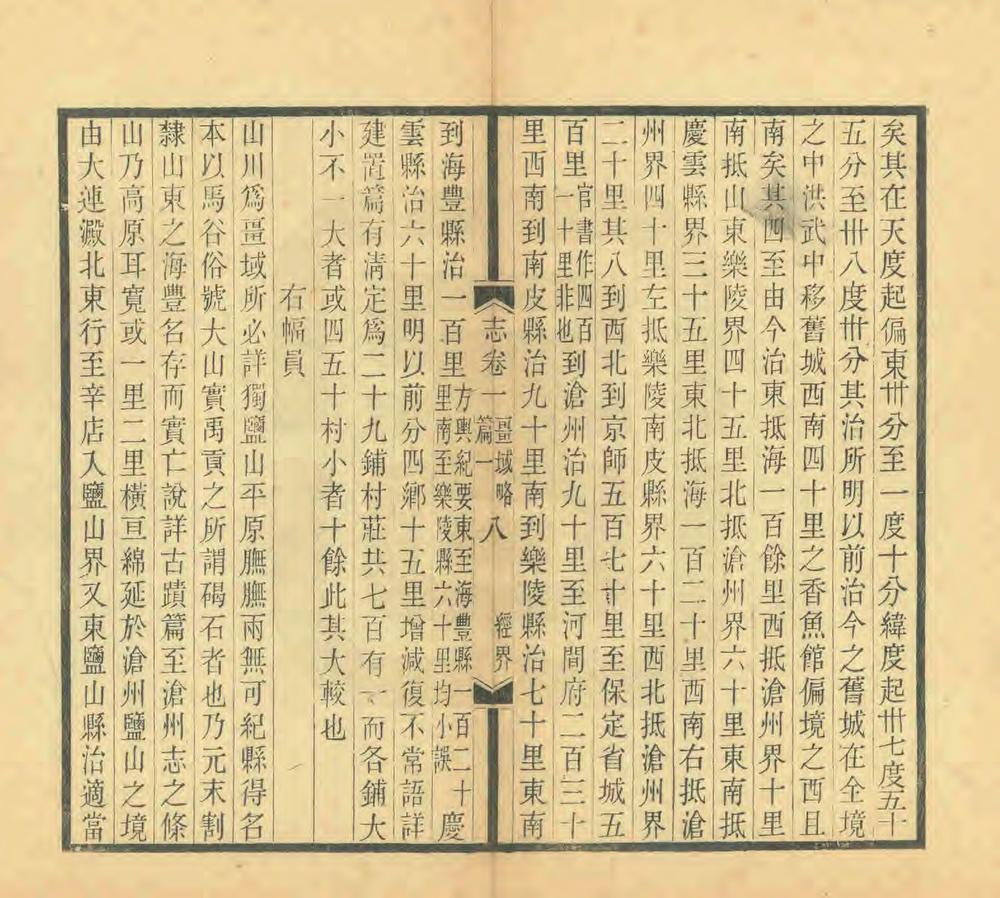 矣其在天度起偏東卅分至一度十分緯度起卅七度五十
五分至卅八度卅分其治所明以前治今之舊城在全境
之中洪武中移舊城西南四十里之香魚館偏境之西且
南矣其四至由今治東抵海一百餘里西抵滄州界十里
南抵山東樂陵界四十五里北抵滄州界六十里東南抵
慶雲縣界三十五里東北抵海一百二十里西南右抵滄
州界四十里左抵樂陵南皮縣界六十里西北抵滄州界
二十里其八到西北到京師五百七十里至保定省城五
百里官書作四百一十里非也到滄州治九十里至河間府二百三十
里西南到南皮縣治九十里南到樂陵縣治七十里東南
志卷一 疆域略 篇一 八 經界
到海豐縣治一百里方輿紀要東至海豐縣一百二十里南至樂陵縣六十里均小誤慶
雲縣治六十里明以前分四鄉十五里增減復不常語詳
建置篇有淸定爲二十九鋪村莊共七百有一而各鋪大
小不一大者或四五十村小者十餘此其大較也
右幅員
山川爲畺域所必詳獨鹽山平原膴膴兩無可紀縣得名
本以馬谷俗號大山實禹貢之所謂碣石者也乃元末割
隸山東之海豐名存而實亡說詳古蹟篇至滄州志之條
山乃高原耳寬或一里二里橫亘綿延於滄州鹽山之境
由大連澱北東行至辛店入鹽山界又東鹽山縣治適當